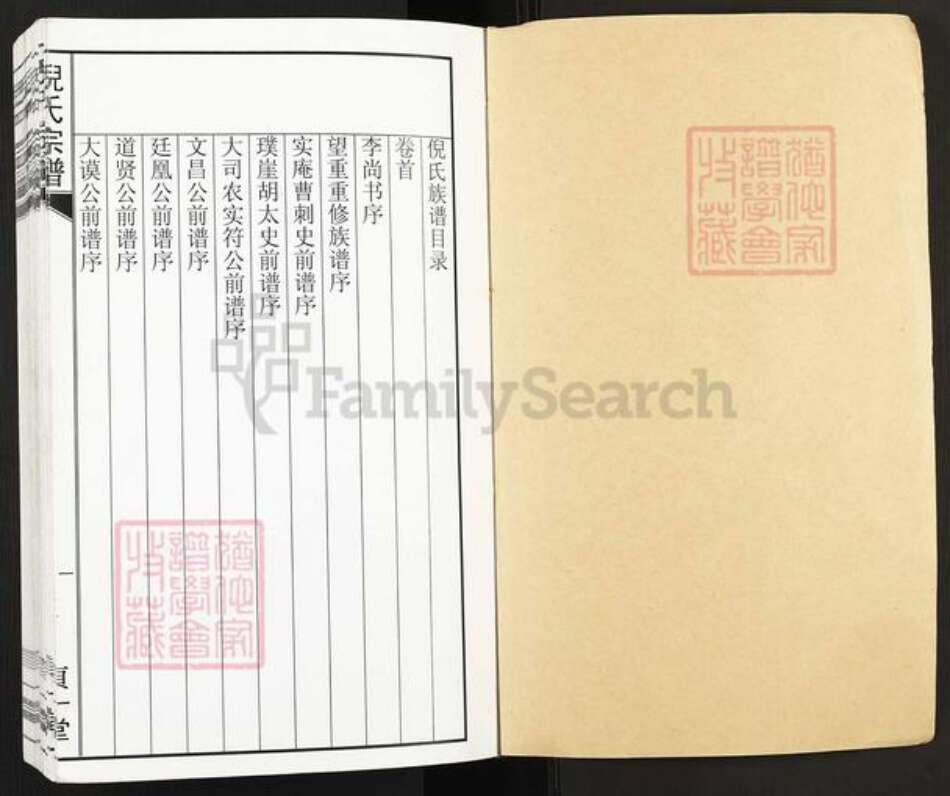 倪氏族谱目录
卷首
李尚书序
望重重修族谱序
实庵曹刺史前谱序
璞崖胡太史前谱序
大司农实符公前谱序
文昌公前谱序
廷凰公前谱序
道贤公前谱序
大谟公前谱序
倪氏宗谱
一
貞一堂
FamilySearch
猶他家
譜學會
收藏
猶他家
譜學會
收藏